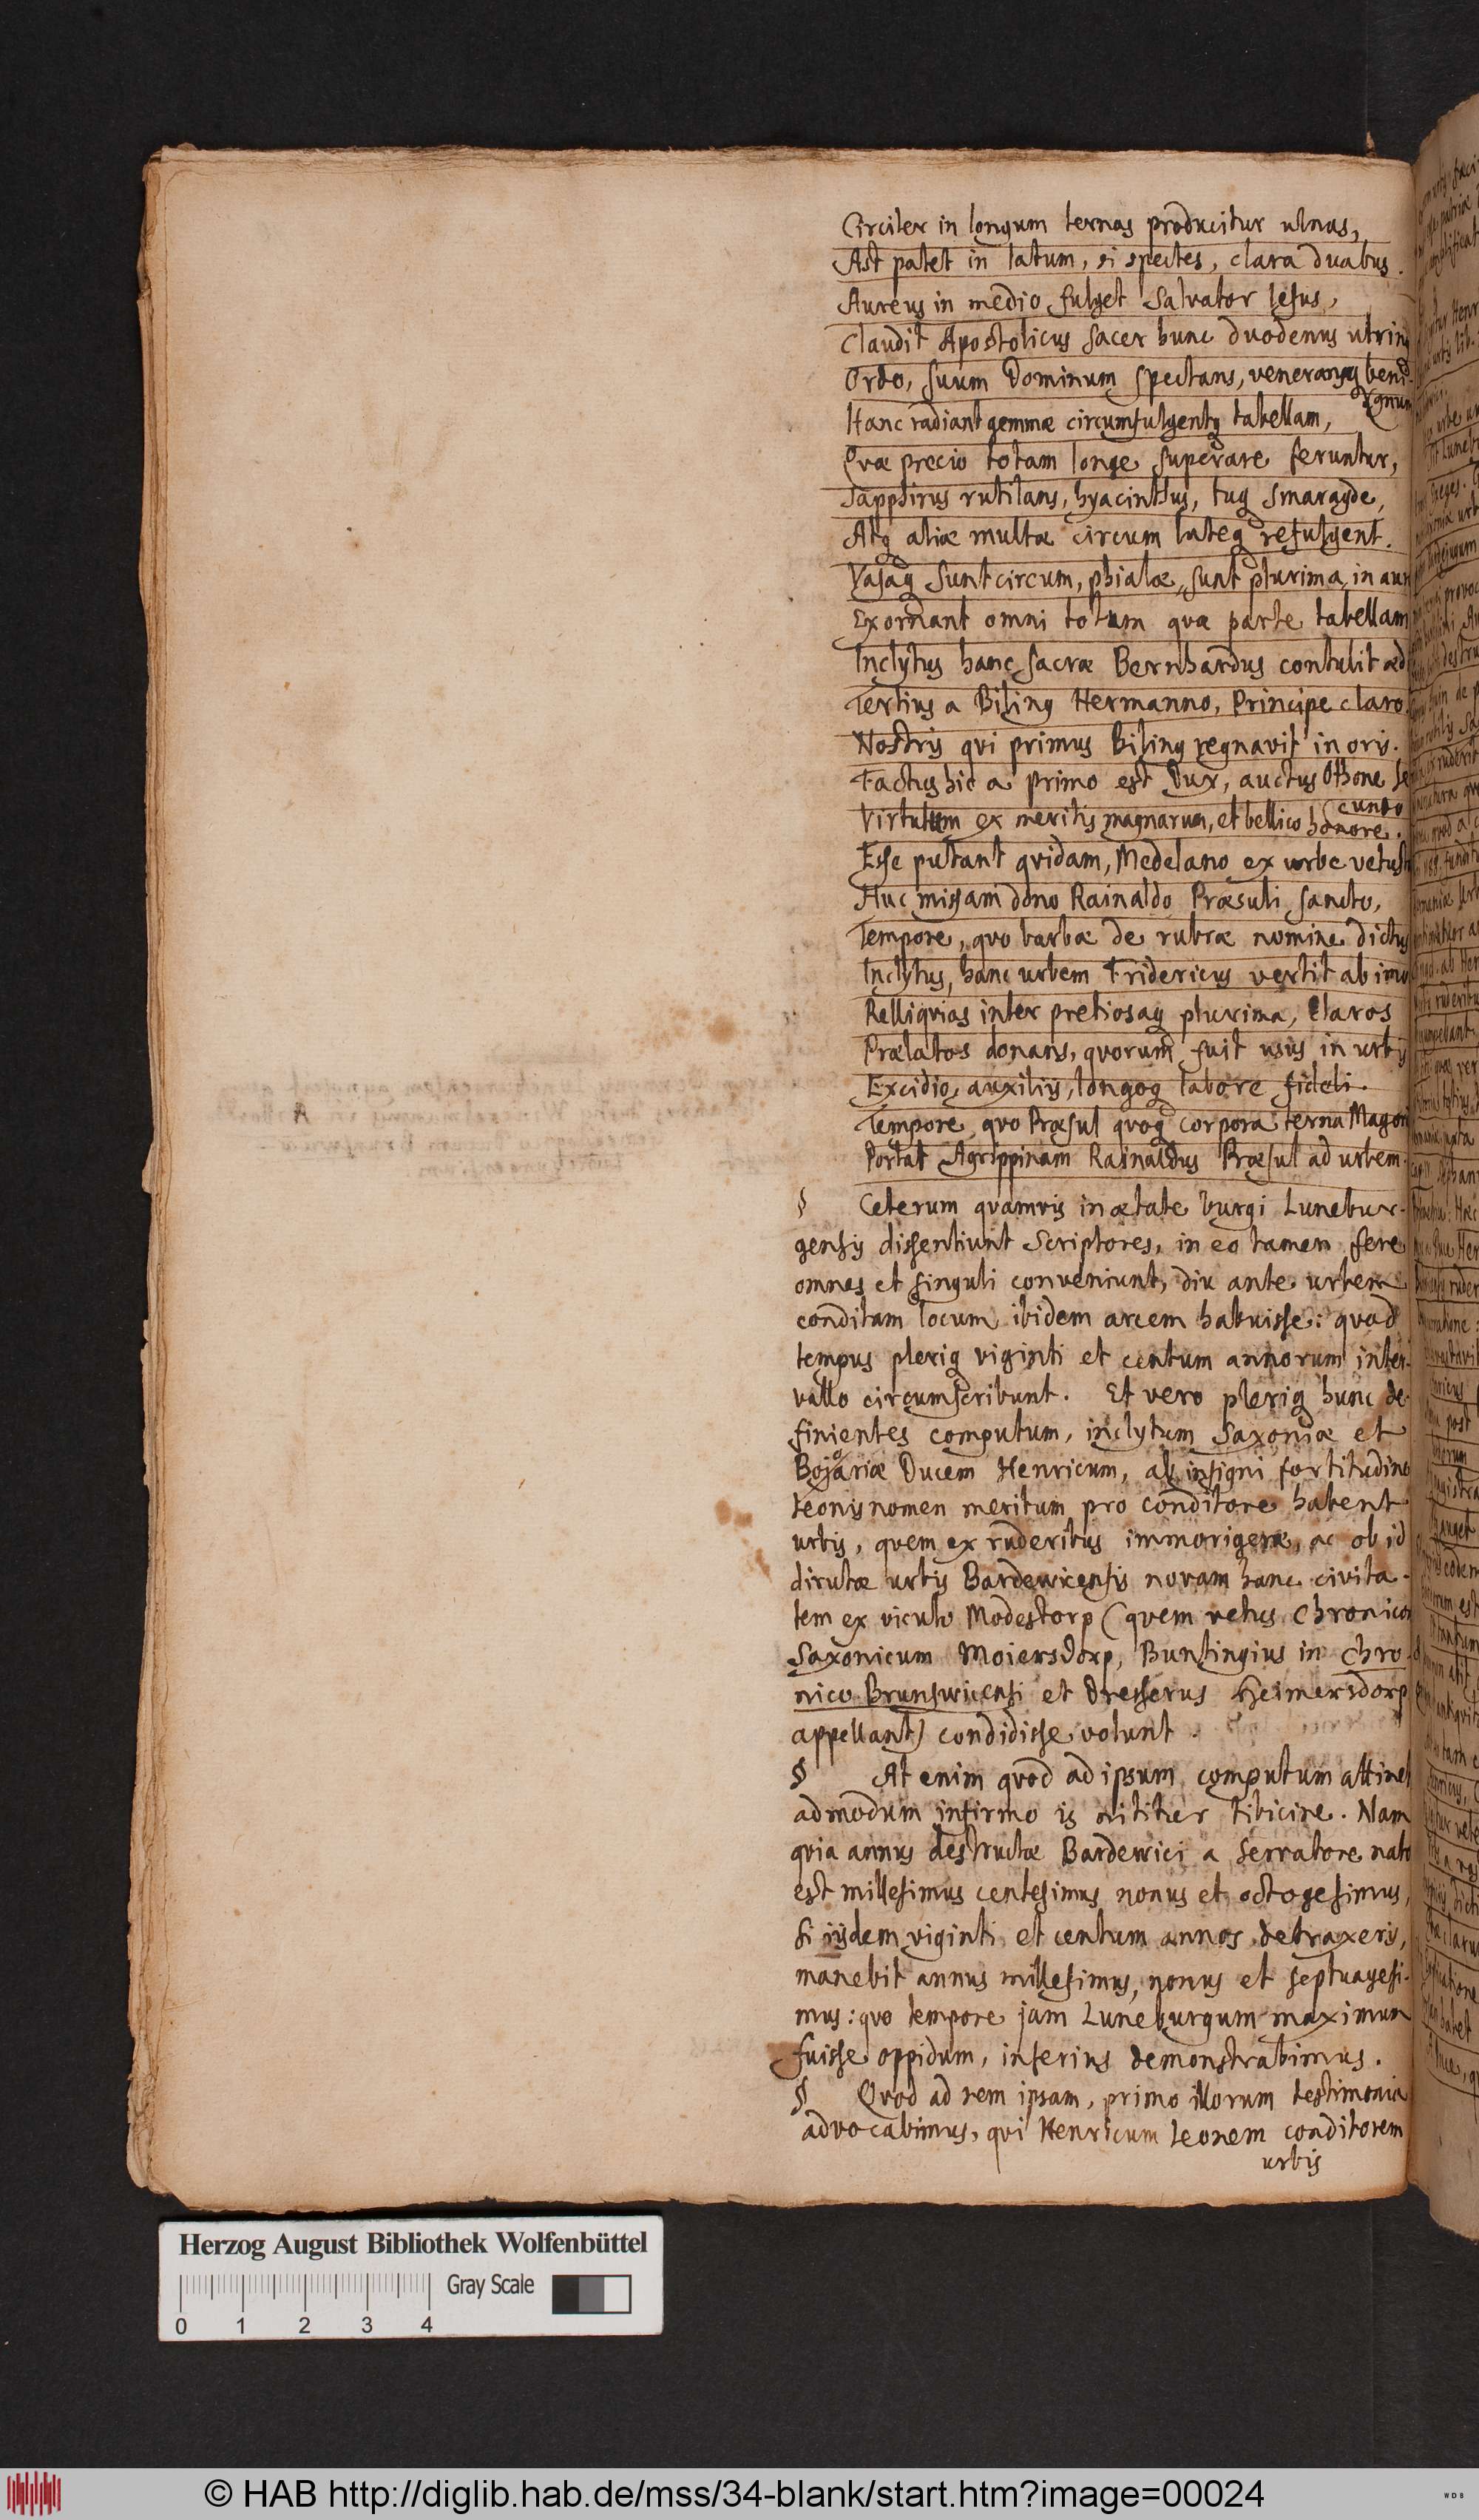 Circiter in longum ternas producitur ulnas,
Ast patet in latum, si spectes, clara duabus.
Aureus in medio fulget Salvator Iesus,
Claudit Apostolicus sacer hunc duodenus utrinq
Ordo, suum Dominum spectans, veneransq beni-
gnum
Hanc radiant gemmæ circumfulgentq tabellam,
Qvæ precio totam longe superare feruntur,
Sapphirus rutilans, hyacinthus, tuq smaragde,
Atq aliæ multæ circum lateq refulgent.
Vasaq sunt circum, phialæ, sunt plurima, in
Exornant omni totum qva parte tabellam
Inclytus hanc sacræ Bernhardus contulit æd
Tertius a Biling Hermanno, Principe claro
Nostris qvi primus Biling regnavit in oris.
Factus hic a primo est Dux, auctus Othone Se
cundo
Virtutum ex meritis magnarum, et bellico honore.
Esse putant qvidam, Medelano ex urbe vetust
Huc missam dono Rainaldo Præsuli sancto,
Tempore, qvo barbæ de rubræ nomine dictus
Inclytus, hanc urbem Fridericus vertit ab imo
Relliqvias inter pretiosaq plurima, Claros
Prælatos donans, qvorum fuit usus in urbis
Excidio auxiliis, longoq labore fideli.
Tempore, qvo Præsul qvoq corpora terna Magor
Portat Agrippinam Rainaldus Præsul ad urbem.
§ Ceterum qvamvis in ætate burgi Lunebur-
gensis dissentiunt Scriptores, in eo tamen fere
omnes et singuli conveniunt, diu ante urbem
conditam locum ibidem arcem habuisse: qvod
tempus pleriq viginti et centum annorum inter-
vallo circumscribunt. Et vero pleriq hunc de-
finientes computum, inclytum Saxoniæ et
Bojoariæ Ducem Henricum, ab insigni fortitudine
Leonis nomen meritum pro conditore habent
urbis, qvem ex ruderibus immorigeræ, ac ob id
dirutæ urbis Bardewicensis novam hanc civita-
tem ex viculo Modestorp (qvem vetus Chronicon
Saxonicum Moiersdorp, Buntingius in Chro-
nico Brunswicensi et Dresserus Heimersdorp
appellant) condidisse volunt.
§ At enim qvod ad ipsum computum attinet
admodum infirmo is nititur tibicine. Nam
qvia annus destructæ Bardewici a Servatore nato
est millesimus centesimus nonus et octogesimus,
si iisdem viginti et centum annos detraxeris,
manebit annus millesimus, nonus et septuagesi-
mus: qvo tempore jam Luneburgum maximum
fuisse oppidum, inferius demonstrabimus.
§ Qvod ad rem ipsam, primo illorum testimonia
advocabimus, qvi Henricum Leonem conditorem
urbis
Herzog August Bibliothek Wolfenbüttel
Gray Scale
0 1 2 3 4
© HAB http://diglib.hab.de/mss/34-blank/start.htm?image=00024
WDB